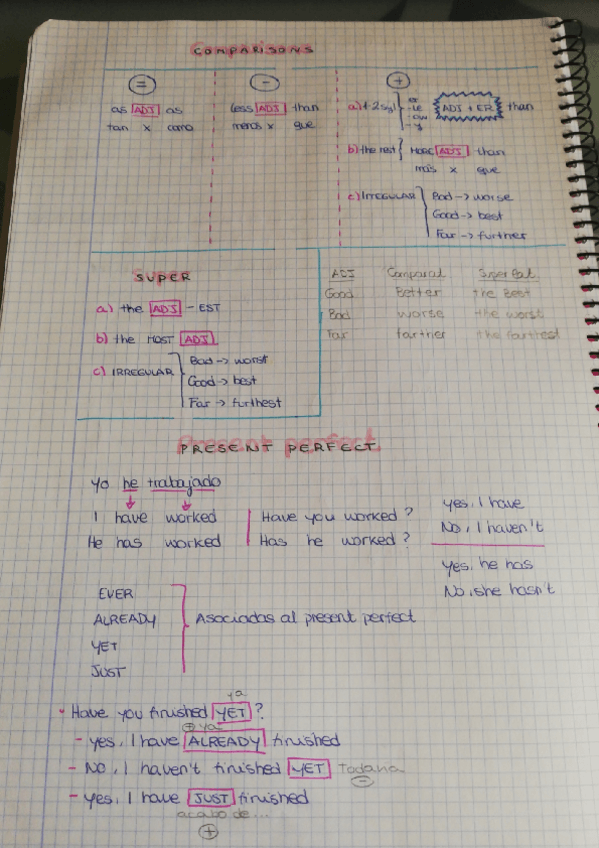 COMPARISONS
=
as ADJ as
tan x como
-
less ADJ than
menos x que
+
a) + 2 syl
-er
-LE
-ow
-y
ADJ + ER than
b) the rest MORE ADJ than
más x que
c) IRREGULAR
Bad → worse
Good → best
Far → further
SUPER
a) the ADJ - EST
b) the MOST ADJ
c) IRREGULAR
Bad → worst
Good → best
Far → furthest
ADJ Comparat. Superlat.
Good Better the Best
Bad worse the worst
Far farther the farthest
PRESENT PERFECT
Yo he trabajado
I have worked
He has worked
Have you worked?
Has he worked?
yes, I have
No, I haven't
Yes, he has
No, she hasn't
EVER
ALREADY
YET
JUST
Asociadas al present perfect
ya
- Have you finished YET?
+ ya
- yes, I have ALREADY finished
- No, I haven't finished YET Todavía
-
- yes, I have JUST finished
acabo de...
+